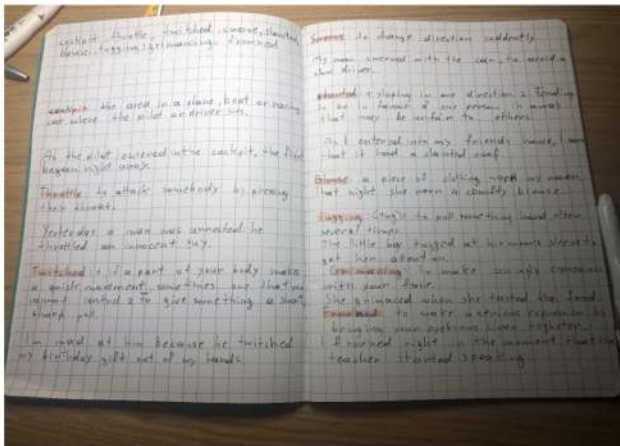 cockpit, throttle, twitched, swerve, slanted,
blouse, tugging, grimacing, frowned
cockpit the area in a plane, boat or racing
car where the pilot or driver sits.
As the pilot entered in the cockpit, the flight
began right away.
Throttle to attack somebody by pressing
their throat.
Yesterday a man was arrested he
throttled an innocent guy.
Twitched 1 if a part of your body makes
a quick movement, sometimes one that you
cannot control 2 to give something a short,
sharp pull.
I'm mad at him because he twitched
my birthday gift out of my hands.
Swerve to change direction suddenly
My mom swerved with the car, to avoid a
slow driver.
slanted 1 sloping in one direction 2 Tending
to be in favour of one person in ways
that may be unfair to others.
As I entered into my friends house, I saw
that it had a slanted roof.
Blouse a piece of clothing worn by women
That night she worn a comfty blouse.
Tugging (tug) to pull something hard often
several times.
The little boy tugged at his mom's sleeve to
get her attention.
Grimacing: To make an ugly expression
with your face.
She grimaced when she tasted the food.
Frowned to make a serious expression by
bringing your eyebrows closer togheter.
I frowned right in the moment that the
teacher started speaking.